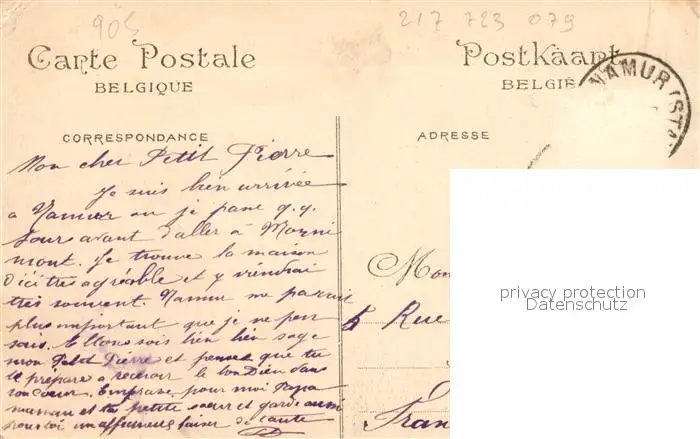 905
217 723 079
Carte Postale
BELGIQUE
Postkaart
BELGIË
NAMUR (STA
CORRESPONDANCE
ADRESSE
Mon cher Petit Pierre
Je suis bien arrivée
à Namur ou je passe q.q.
jours avant d'aller à Mozni
mont. Je trouve la maison
d'ici très agréable et y viendrai
très souvent. Namur me parait
plus important que je ne pen
sais. Et toi sois bien bien sage
mon Petit Pierre et pense que tu
te prépare a recevoir le bon Dieu dans
ton coeur. Embrasse pour moi Papa
maman et ta petite soeur et garde aussi
pour toi un affectueux baiser de tante
Mon
5 Rue
Fran
privacy protection
Datenschutz